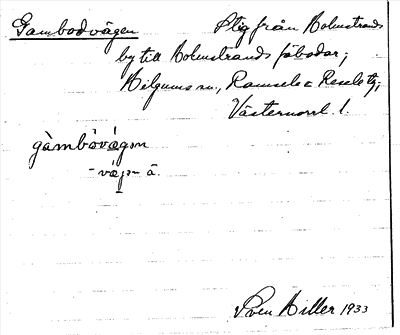 Gambodvägen Stig från Holmstrands
by till Holmstrands fäbodar;
Helgums sn, Ramsele o Resele tg,
Västernorrl. l.
gàmbòvägɘn
- vägɘn ä.
Sven Hiller 1933